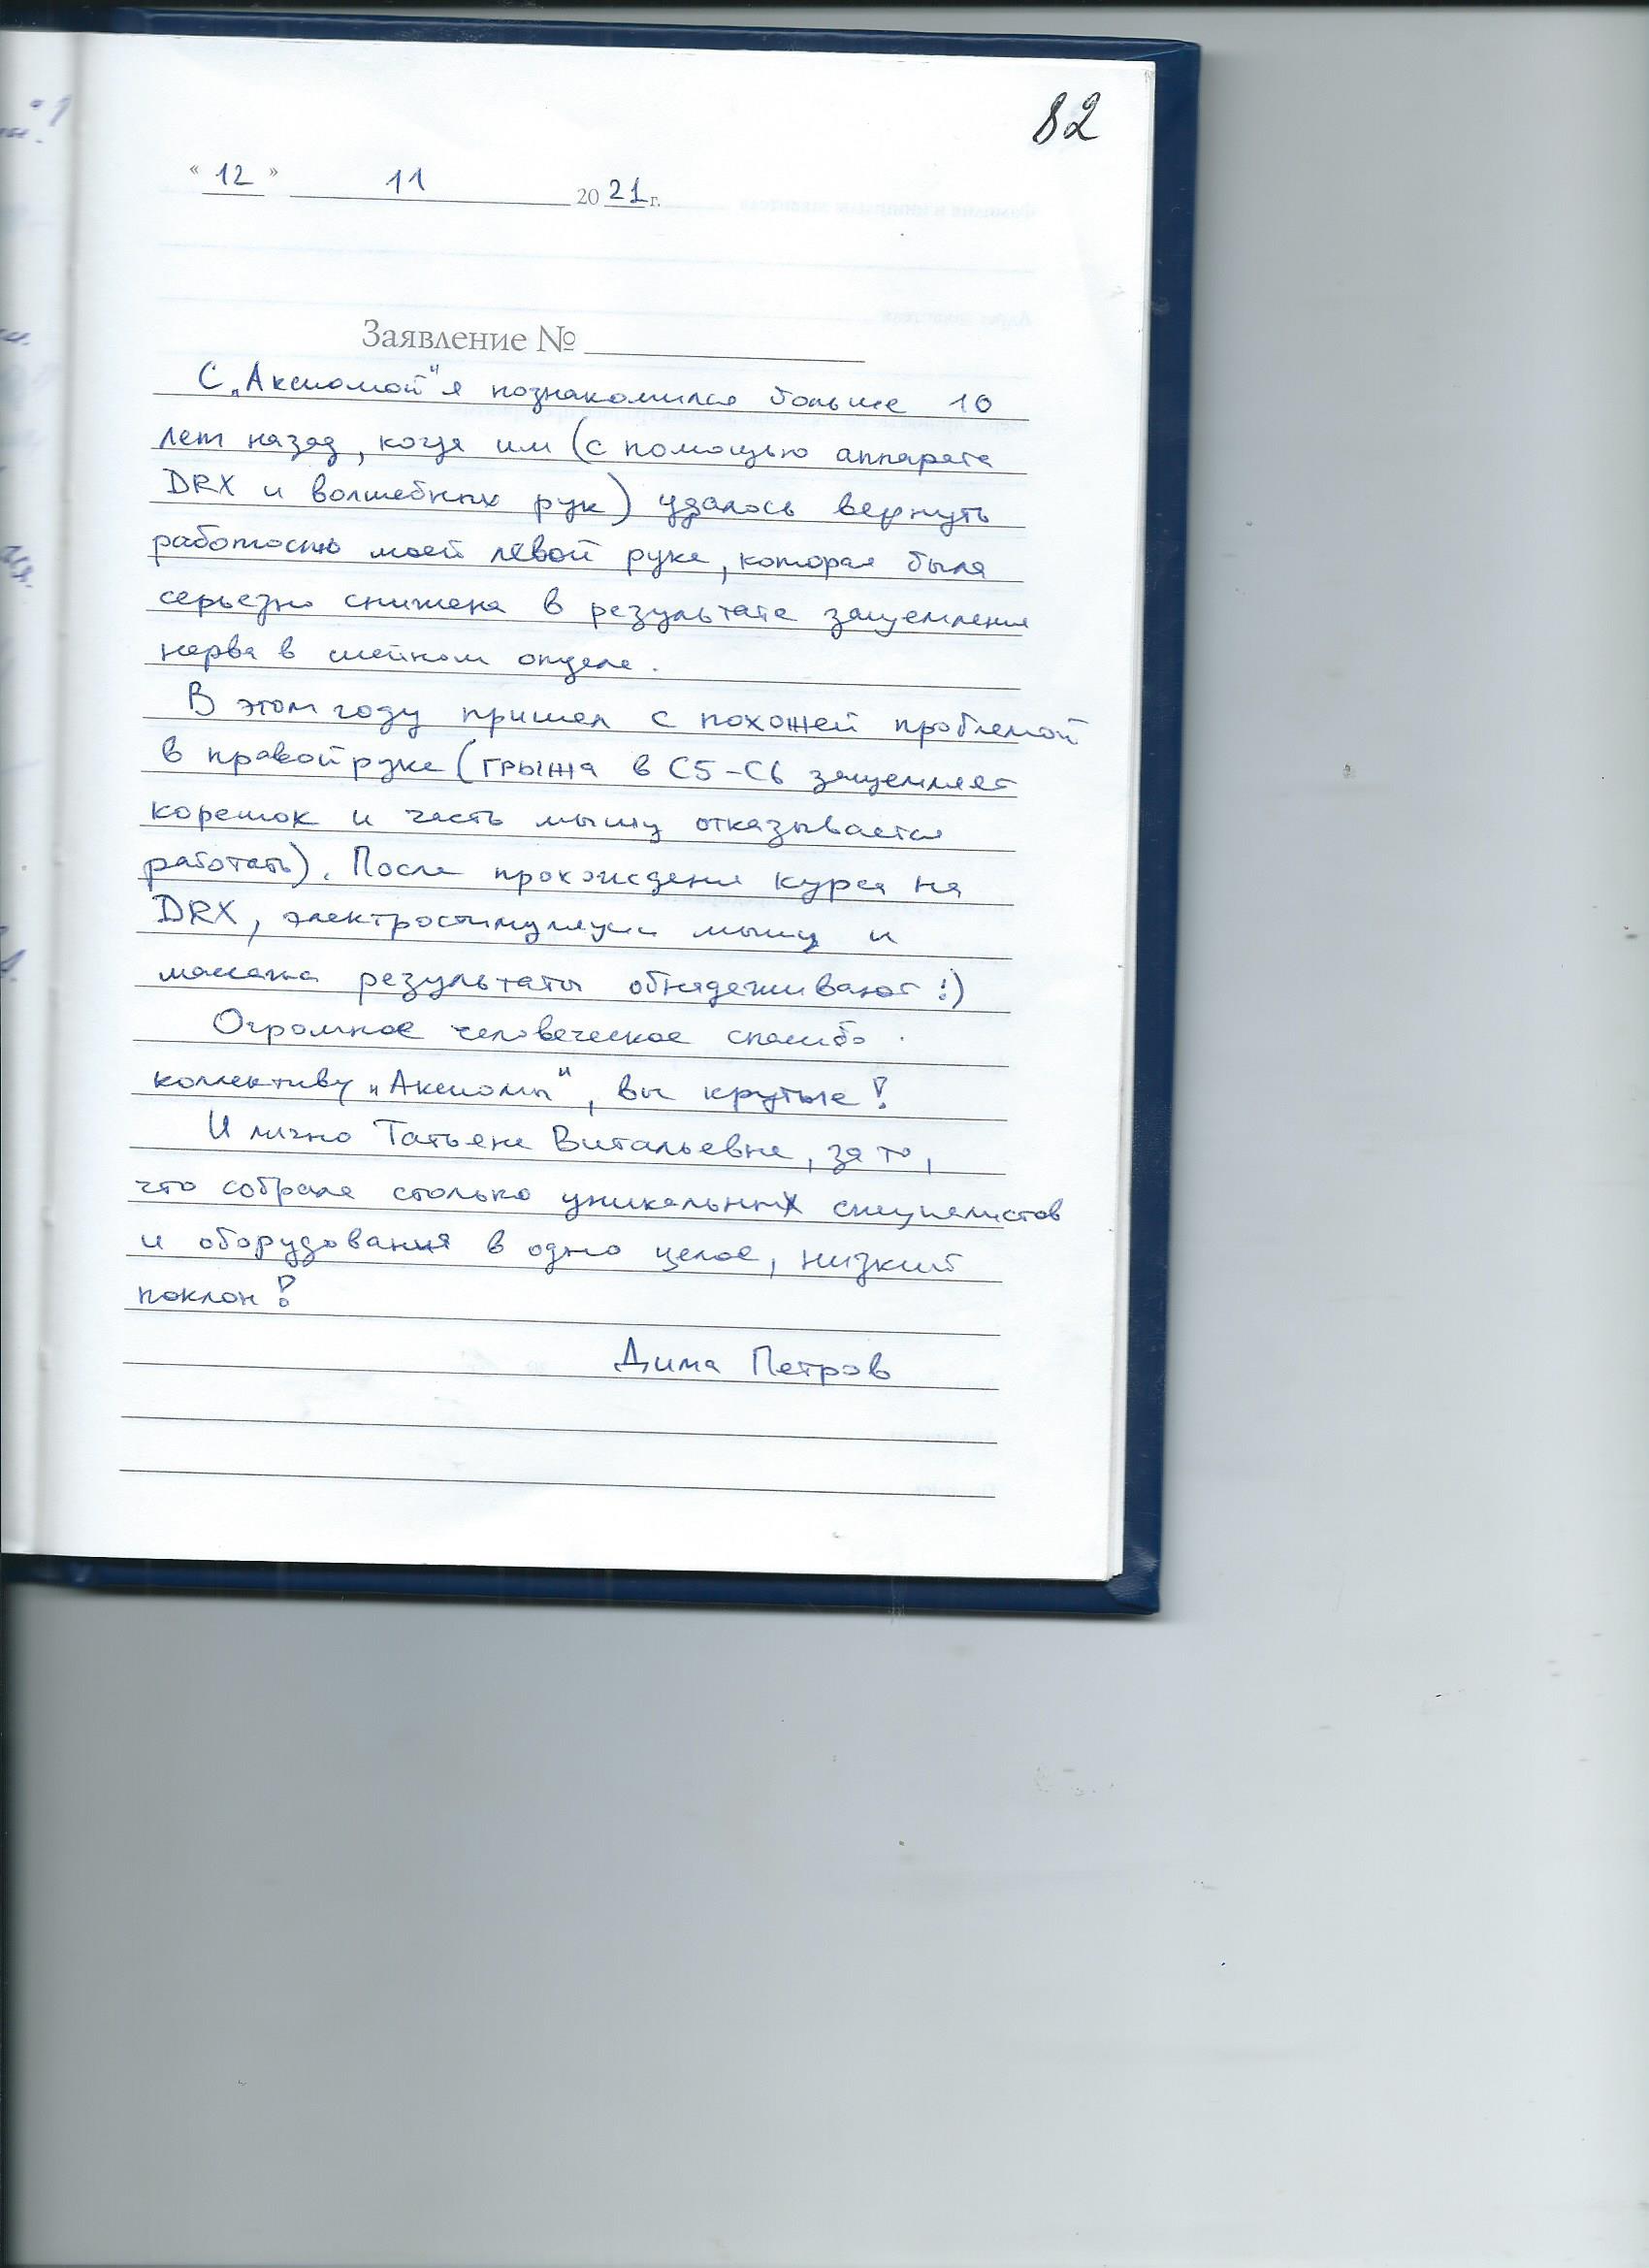 82
« 12 » 11 2021 г.
Заявление №
С „Аксиомой" я познакомился больше 10
лет назад, когда им (с помощью аппарата
DRX и волшебных рук) удалось вернуть
работость моей левой руке, которая была
серьезно снижена в результате защемления
нерва в шейном отделе.
В этом году пришел с похожей проблемой
в правой руке (грыжа в C5-C6 защемляет
корешок и часть мышц отказывается
работать). После прохождения курса на
DRX, электростимуляции мышц и
массажа результаты обнадеживают!)
Огромное человеческое спасибо
коллективу „Аксиомы", вы крутые!
И лично Татьяне Витальевне, за то,
что собрала столько уникальных специалистов
и оборудования в одно целое, низкий
поклон!
Дима Петров